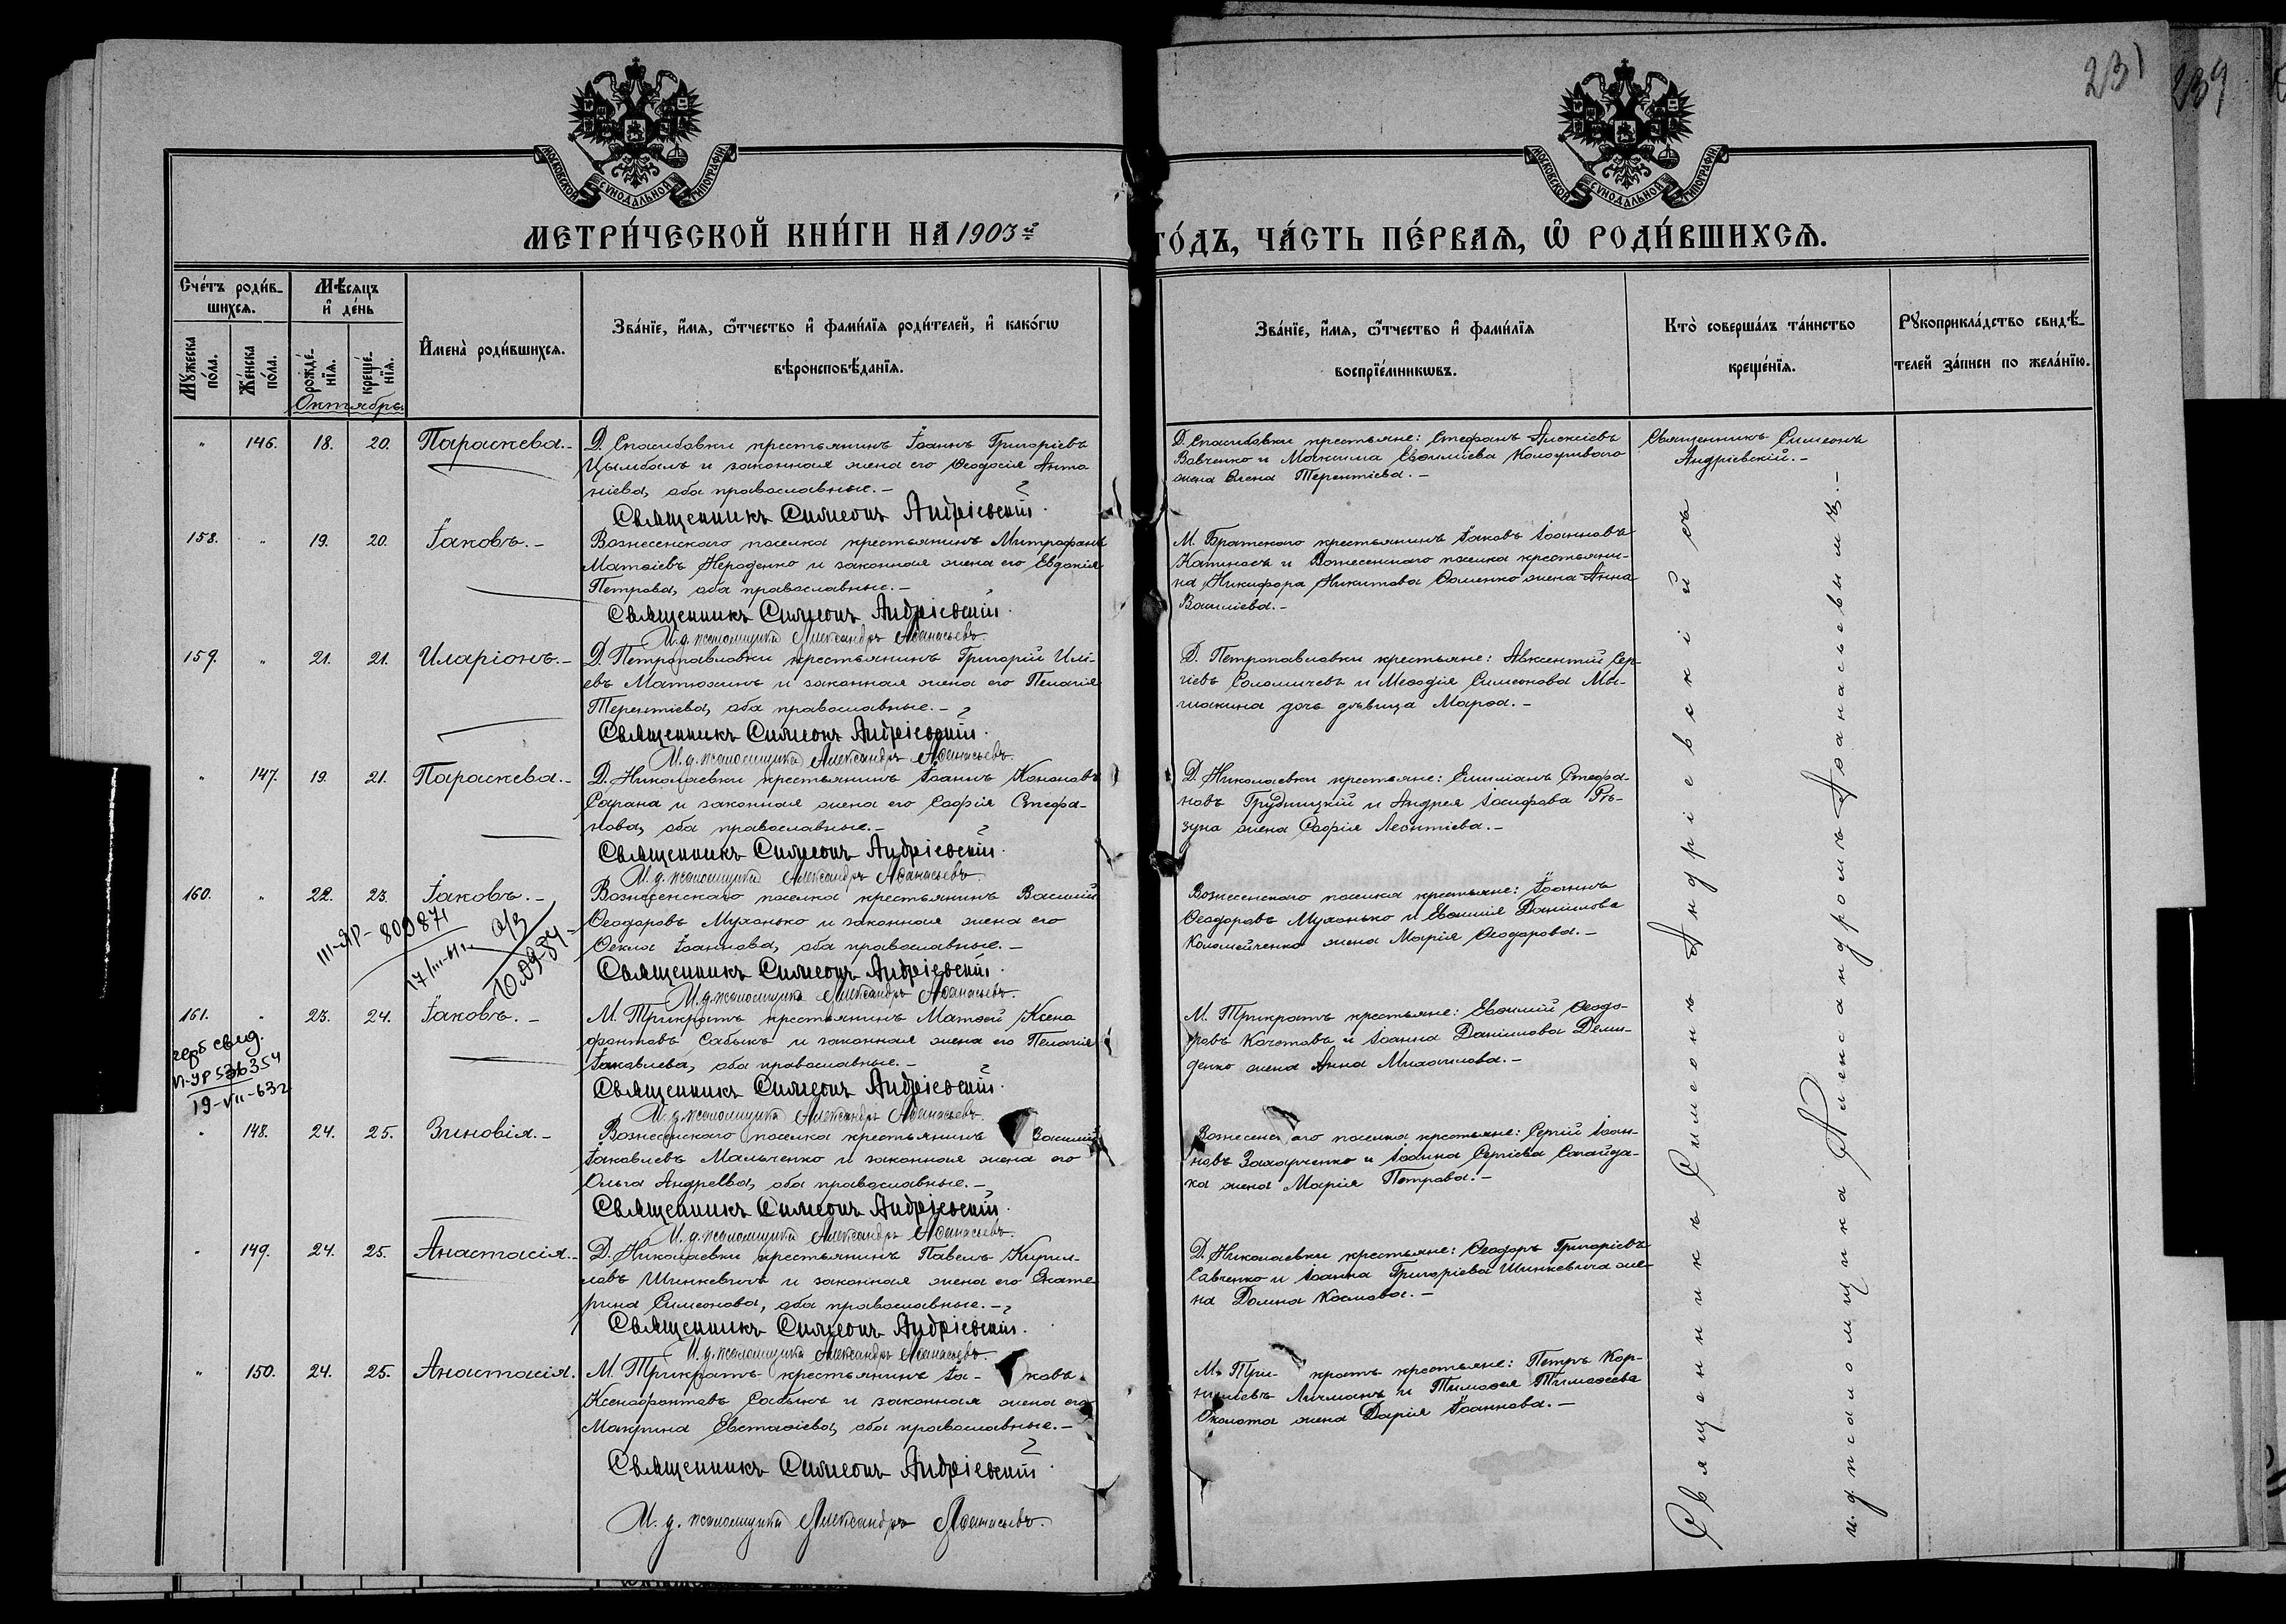 231
239
МОСКОВСКОЙ СѴНОДАЛЬНОЙ ТИПОГРАФІИ
МОСКОВСКОЙ СѴНОДАЛЬНОЙ ТИПОГРАФІИ
МЕТРИ́ЧЕСКОЙ КНИ́ГИ НА 1903й
ГО́ДЪ, ЧА́СТЬ ПЕ́РВАѦ, Ѡ҆ РОДИ́ВШИХСѦ.
Сче́тъ роди́в-
шихсѧ.
Мѣ́сѧцъ
и҆ де́нь
И҆мена̀ роди́вшихсѧ.
Зва́нїе, и҆́мѧ, ѻ҆́тчество и҆ фами́лїѧ роди́телей, и҆ како́гѡ
вѣроисповѣ́данїѧ.
Мꙋ́жеска по́ла.
Же́нска по́ла.
рожде́-
нїѧ.
креще́-
нїѧ.
Октябрь
Зва́нїе, и҆́мѧ, ѻ҆́тчество и҆ фами́лїѧ
воспрїе́мникѡвъ.
Кто̀ соверша́лъ та́инство
креще́нїѧ.
Рꙋкоприкла́дство свидѣ́-
телей за́писи по жела́нїю.
" 146. 18. 20. Параскева.- Д. Спасибовки крестьянинъ Іоаннъ Григоріевъ
Цымбалъ и законная жена его Ѳеодосія Анто
ніева, оба православные.-
Священникъ Симеонъ Андріевскій.
Д. Спасибовки крестьяне: Стефанъ Алексіевъ
Вовченко и Максима Евѳиміева
жена Елена Терентіева.-
Священникъ Симеонъ
Андріевскій.-
158. " 19. 20. Іаковъ.- Вознесенского поселка крестьянинъ Митрофанъ
Матѳіевъ Нероденко и законная жена его Евдокія
Петрова, оба православные.-
Священникъ Симеонъ Андріевскій.
И. д. псаломщика Александръ Аѳанасьевъ.
М. Братского крестьянинъ Іаковъ Іоанновъ
и Вознесенского поселка крестьяни-
на Никифора Никитова Ѳоменко жена Анна
Василіева.-
159. " 21. 21. Иларіонъ.- Д. Петропавловки крестьянинъ Григорій Илі-
евъ Матюхинъ и законная жена его Пелагія
Терентіева, оба православные.-
Священникъ Симеонъ Андріевскій.
И. д. псаломщика Александръ Аѳанасьевъ.
Д. Петропавловки крестьяне: Авксентій Сер-
гіевъ Соломичевъ и Меѳодія Симеонова Мы-
шакина дочь дѣвица Марѳа.-
" 147. 19. 21. Параскева.- Д. Николаевки крестьянинъ Іоаннъ Кононовъ
Сарана и законная жена его Софія Стефа-
нова, оба православные.-
Священникъ Симеонъ Андріевскій.
И. д. псаломщика Александръ Аѳанасьевъ.
Д. Николаевки крестьяне: Емиліанъ Стефа-
новъ Грудницкій и Андрея Іосифова Рѣ-
зуна жена Софія Леонтіева.-
160. " 22. 23. Іаковъ.- Вознесенского поселка крестьянинъ Василій
Ѳеодоровъ Муханько и законная жена его
Ѳекла Іоаннова, оба православные.-
Священникъ Симеонъ Андріевскій.
И. д. псаломщика Александръ Аѳанасьевъ.
Вознесенского поселка крестьяне: Іоаннъ
Ѳеодоровъ Муханько и Евѳимія Даніилова
Коломейченко жена Марія Ѳеодорова.-
III-ЯР-800871
17/III-61г.
10.09.84
161. " 23. 24. Іаковъ.- М. Трикратъ крестьянинъ Матѳей Ксено
фонтовъ Сабыкъ и законная жена его Пелагія
Іаковлева, оба православные.-
Священникъ Симеонъ Андріевскій.
И. д. псаломщика Александръ Аѳанасьевъ.
М. Трикратъ крестьяне: Евѳимій Ѳеодо-
ровъ Кочетовъ и Іоанна Даніилова Деми-
денко жена Анна Михаилова.-
герб свид.
II-УР 536354
19-VII-63г
" 148. 24. 25. Зиновія.- Вознесенского поселка крестьянинъ Василій
Іаковлевъ Мальченко и законная жена его
Ольга Андреева, оба православные.-
Священникъ Симеонъ Андріевскій.
И. д. псаломщика Александръ Аѳанасьевъ.
Вознесенского поселка крестьяне: Сергій Іоан-
новъ Захарченко и Іоанна Сергіева Сагайда-
ка жена Марія Петрова.-
" 149. 24. 25. Анастасія.- Д. Николаевки крестьянинъ Павелъ Кирил-
ловъ Шинкевичъ и законная жена его Екате
рина Симеонова, оба православные.-
Священникъ Симеонъ Андріевскій.
И. д. псаломщика Александръ Аѳанасьевъ.
Д. Николаевки крестьяне: Ѳеодоръ Григоріевъ
Савченко и Іоанна Григоріева Шинкевича же-
на Домна Космова.-
" 150. 24. 25. Анастасія. М. Трикратъ крестьянинъ Іа- ковъ
Ксенофонтовъ Сабыкъ и законная жена его
Макрина Евстаѳіева, оба православные.-
Священникъ Симеонъ Андріевскій
И. д. псаломщика Александръ Аѳанасьевъ.
М. Три- кратъ крестьяне: Петръ Кор-
ниліевъ Личманъ и Тимоѳея Тимоѳеева
Околота жена Дарія Іоаннова.-
Священникъ Симеонъ Андріевскій съ
и. д. псаломщика Александромъ Аѳанасьевымъ.-